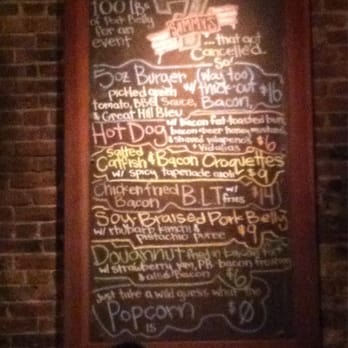 100 lbs
of Pork Belly
for an
event
JIMMY'S
...that got
Cancelled
So!
5oz Burger (way too)
pickled w/ thick-cut $16
tomato, BBQ Sauce, Bacon,
& Great Hill Bleu
w/ bacon fat-toasted bun,
Hot Dog bacon beer honey mustard,
& shaved jalapeños $6
Salted + Vidalias
Catfish & Bacon Croquettes
w/ spicy tapenade aioli $9
Chicken fried B.L.T w/ $14
Bacon fries
Soy-Braised Pork Belly
w/ rhubarb kimchi & $9
pistachio puree
Doughnut fried in bacon fat
w/ strawberry jam, PB-bacon
& bacon $6
Just take a wild guess what the
Popcorn $0
is